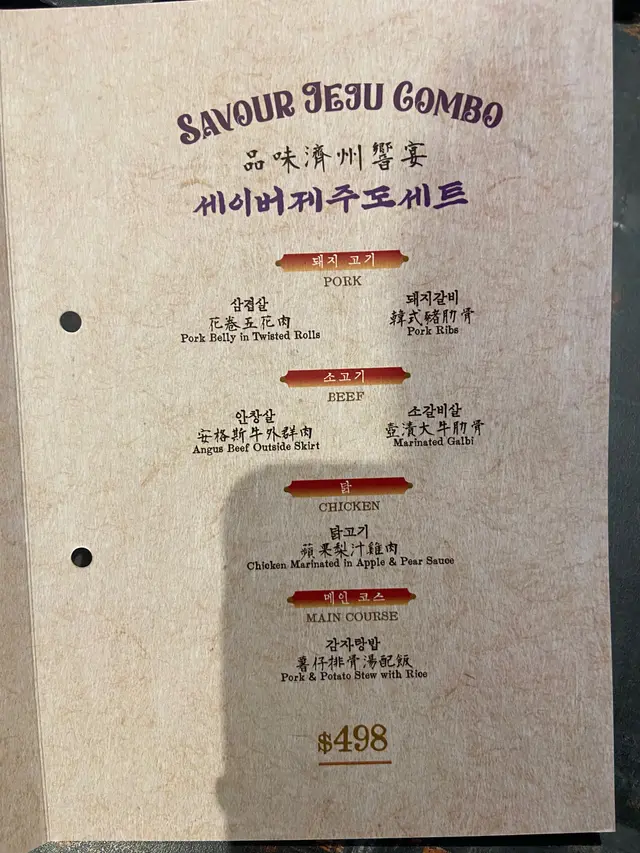 SAVOUR JEJU COMBO
品味濟州饗宴
세이버제주도세트
돼지 고기
PORK
삼겹살
花卷五花肉
Pork Belly in Twisted Rolls
돼지갈비
韓式豬肋骨
Pork Ribs
소고기
BEEF
안창살
安格斯牛外群肉
Angus Beef Outside Skirt
소갈비살
壺漬大牛肋骨
Marinated Galbi
닭
CHICKEN
닭고기
蘋果梨汁雞肉
Chicken Marinated in Apple & Pear Sauce
메인 코스
MAIN COURSE
감자탕밥
薯仔排骨湯配飯
Pork & Potato Stew with Rice
$498